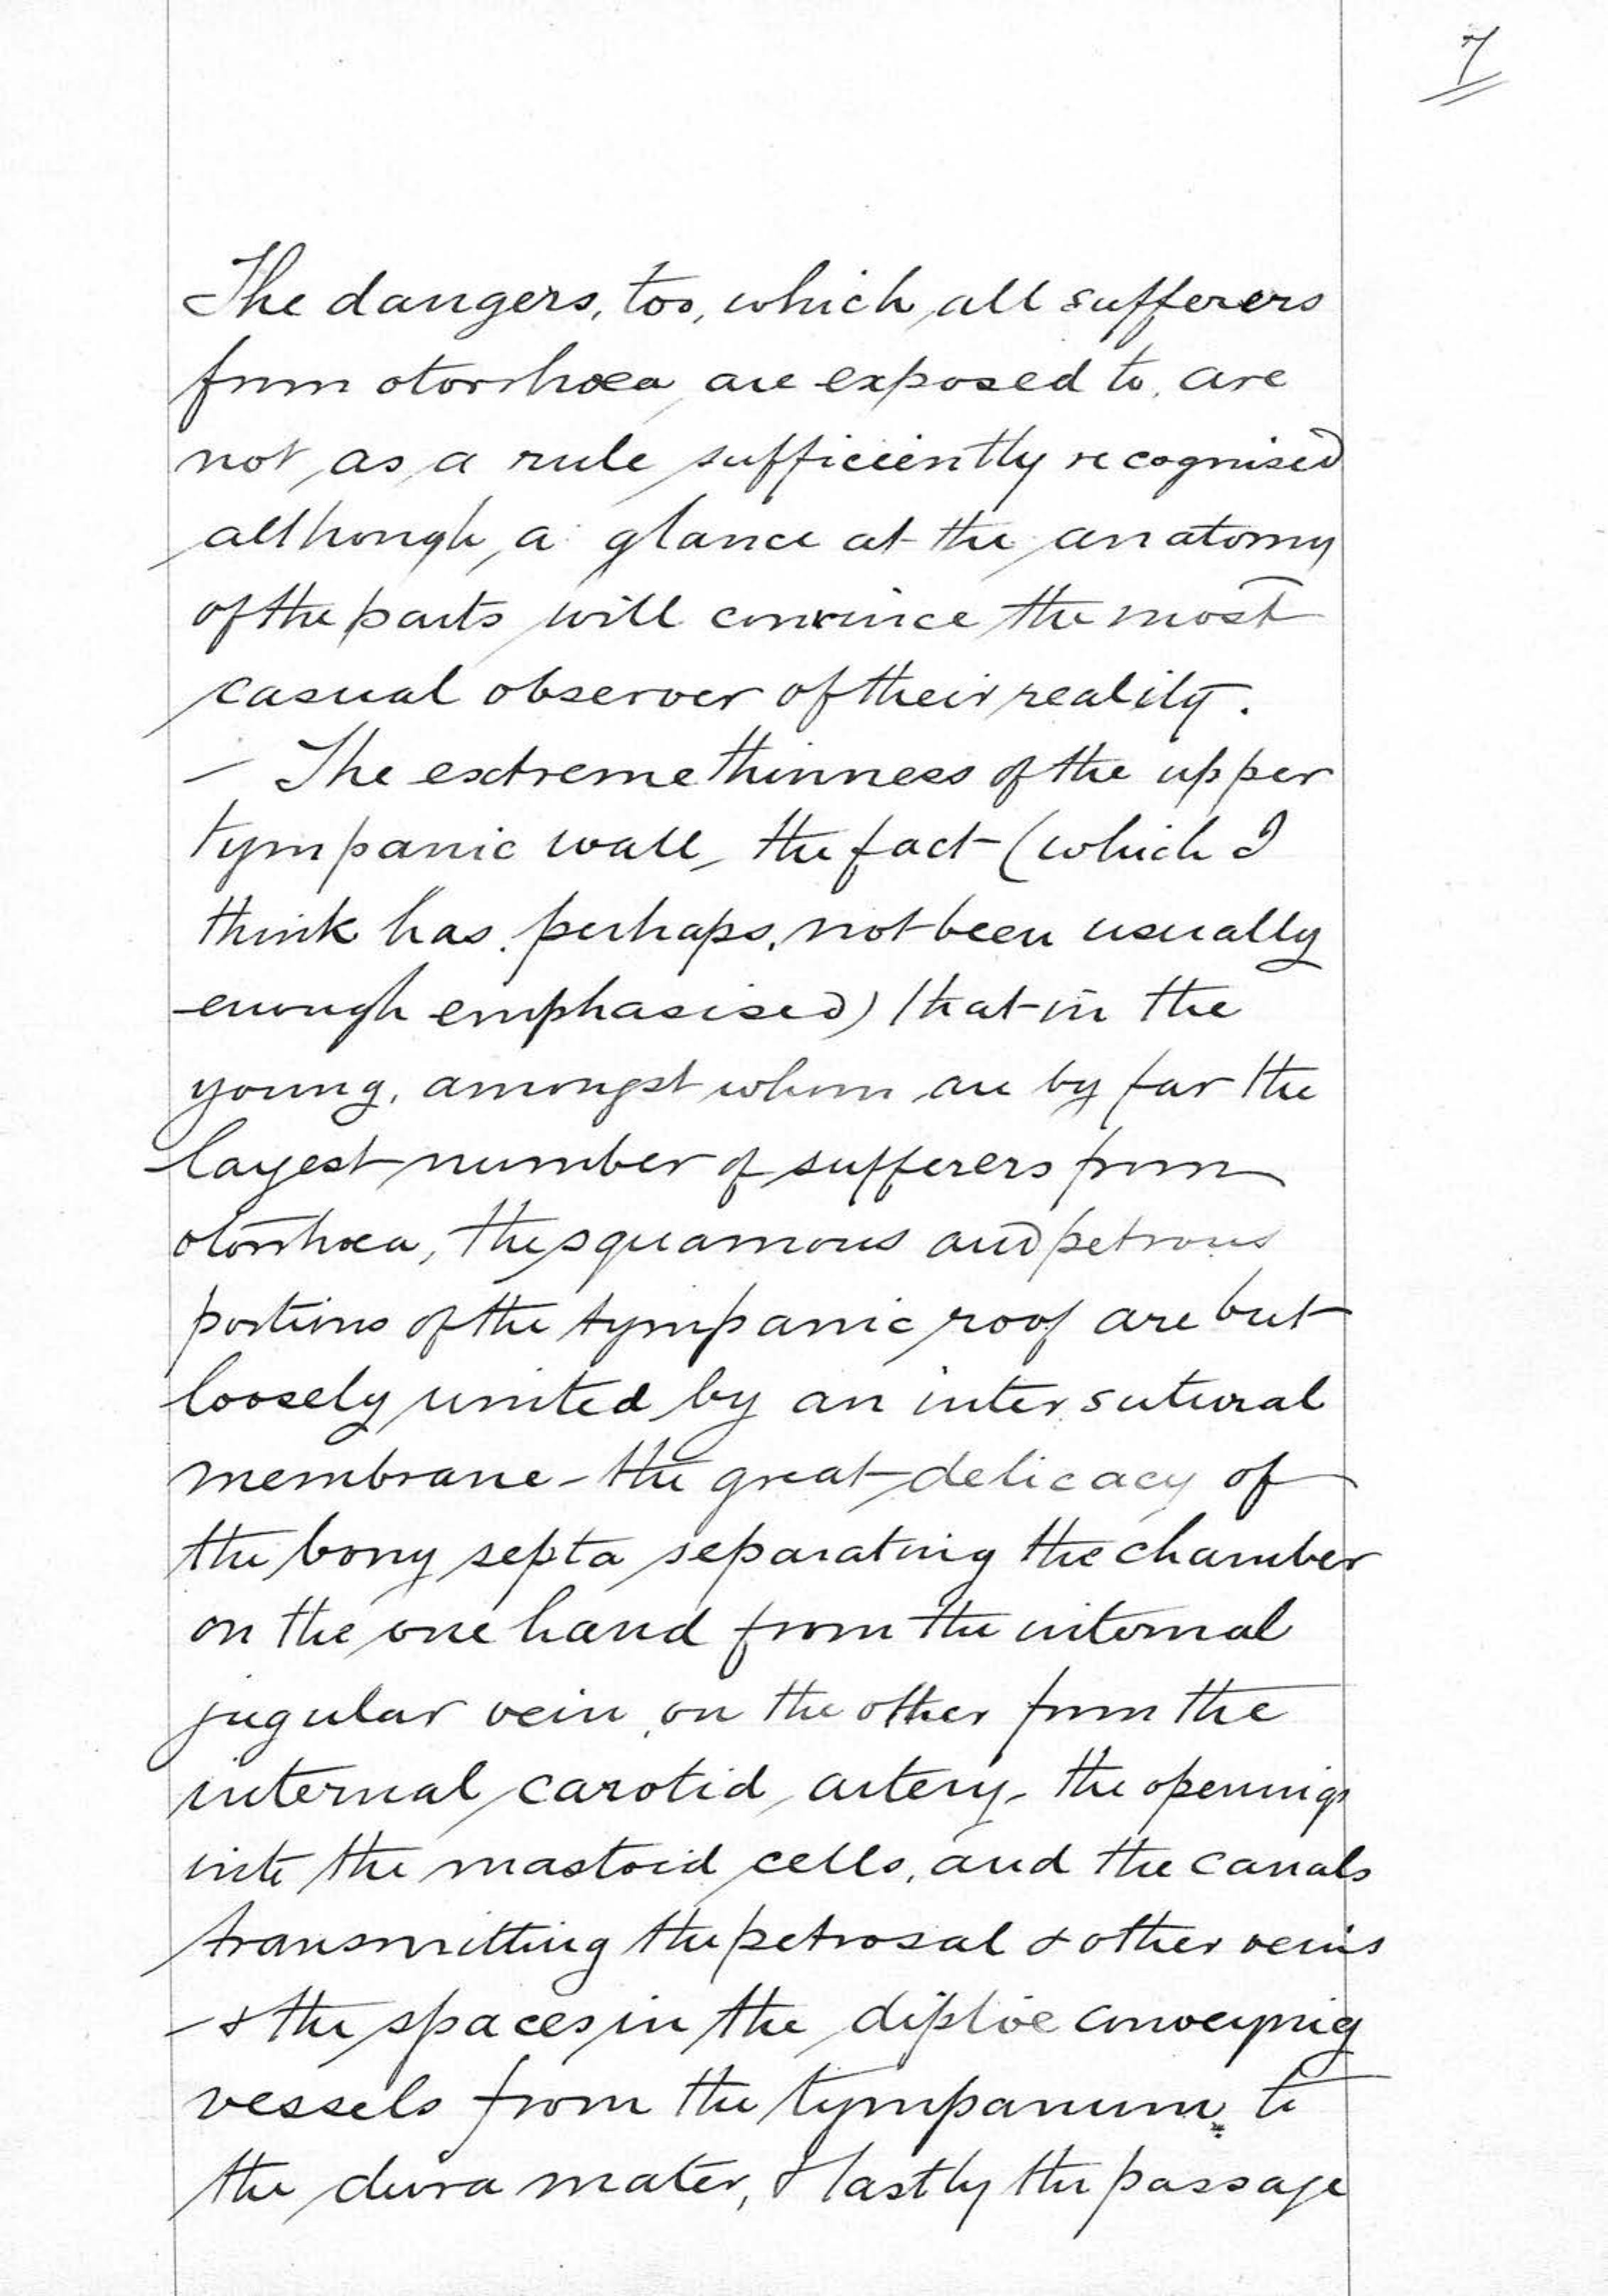 7
The dangers, too, which all sufferers
from otorrhoea are exposed to, are
not as a rule sufficiently recognised
although a glance at the anatomy
of the parts will convince the most
casual observer of their reality.
— The extreme thinness of the upper
tympanic wall, the fact (which I
think has, perhaps, not been usually
enough emphasised) that in the
young, amongst whom are by far the
largest number of sufferers from
otorrhoea, the squamous and petrous
portions of the tympanic roof are but
loosely united by an inter sutural
membrane - the great delicacy of
the bony septa separating the chamber
on the one hand from the internal
jugular vein, on the other from the
internal carotid artery - the openings
into the mastoid cells, and the canals
transmitting the petrosal & other veins
- & the spaces in the diploe conveying
vessels from the tympanum * to
the dura mater, & lastly the passage